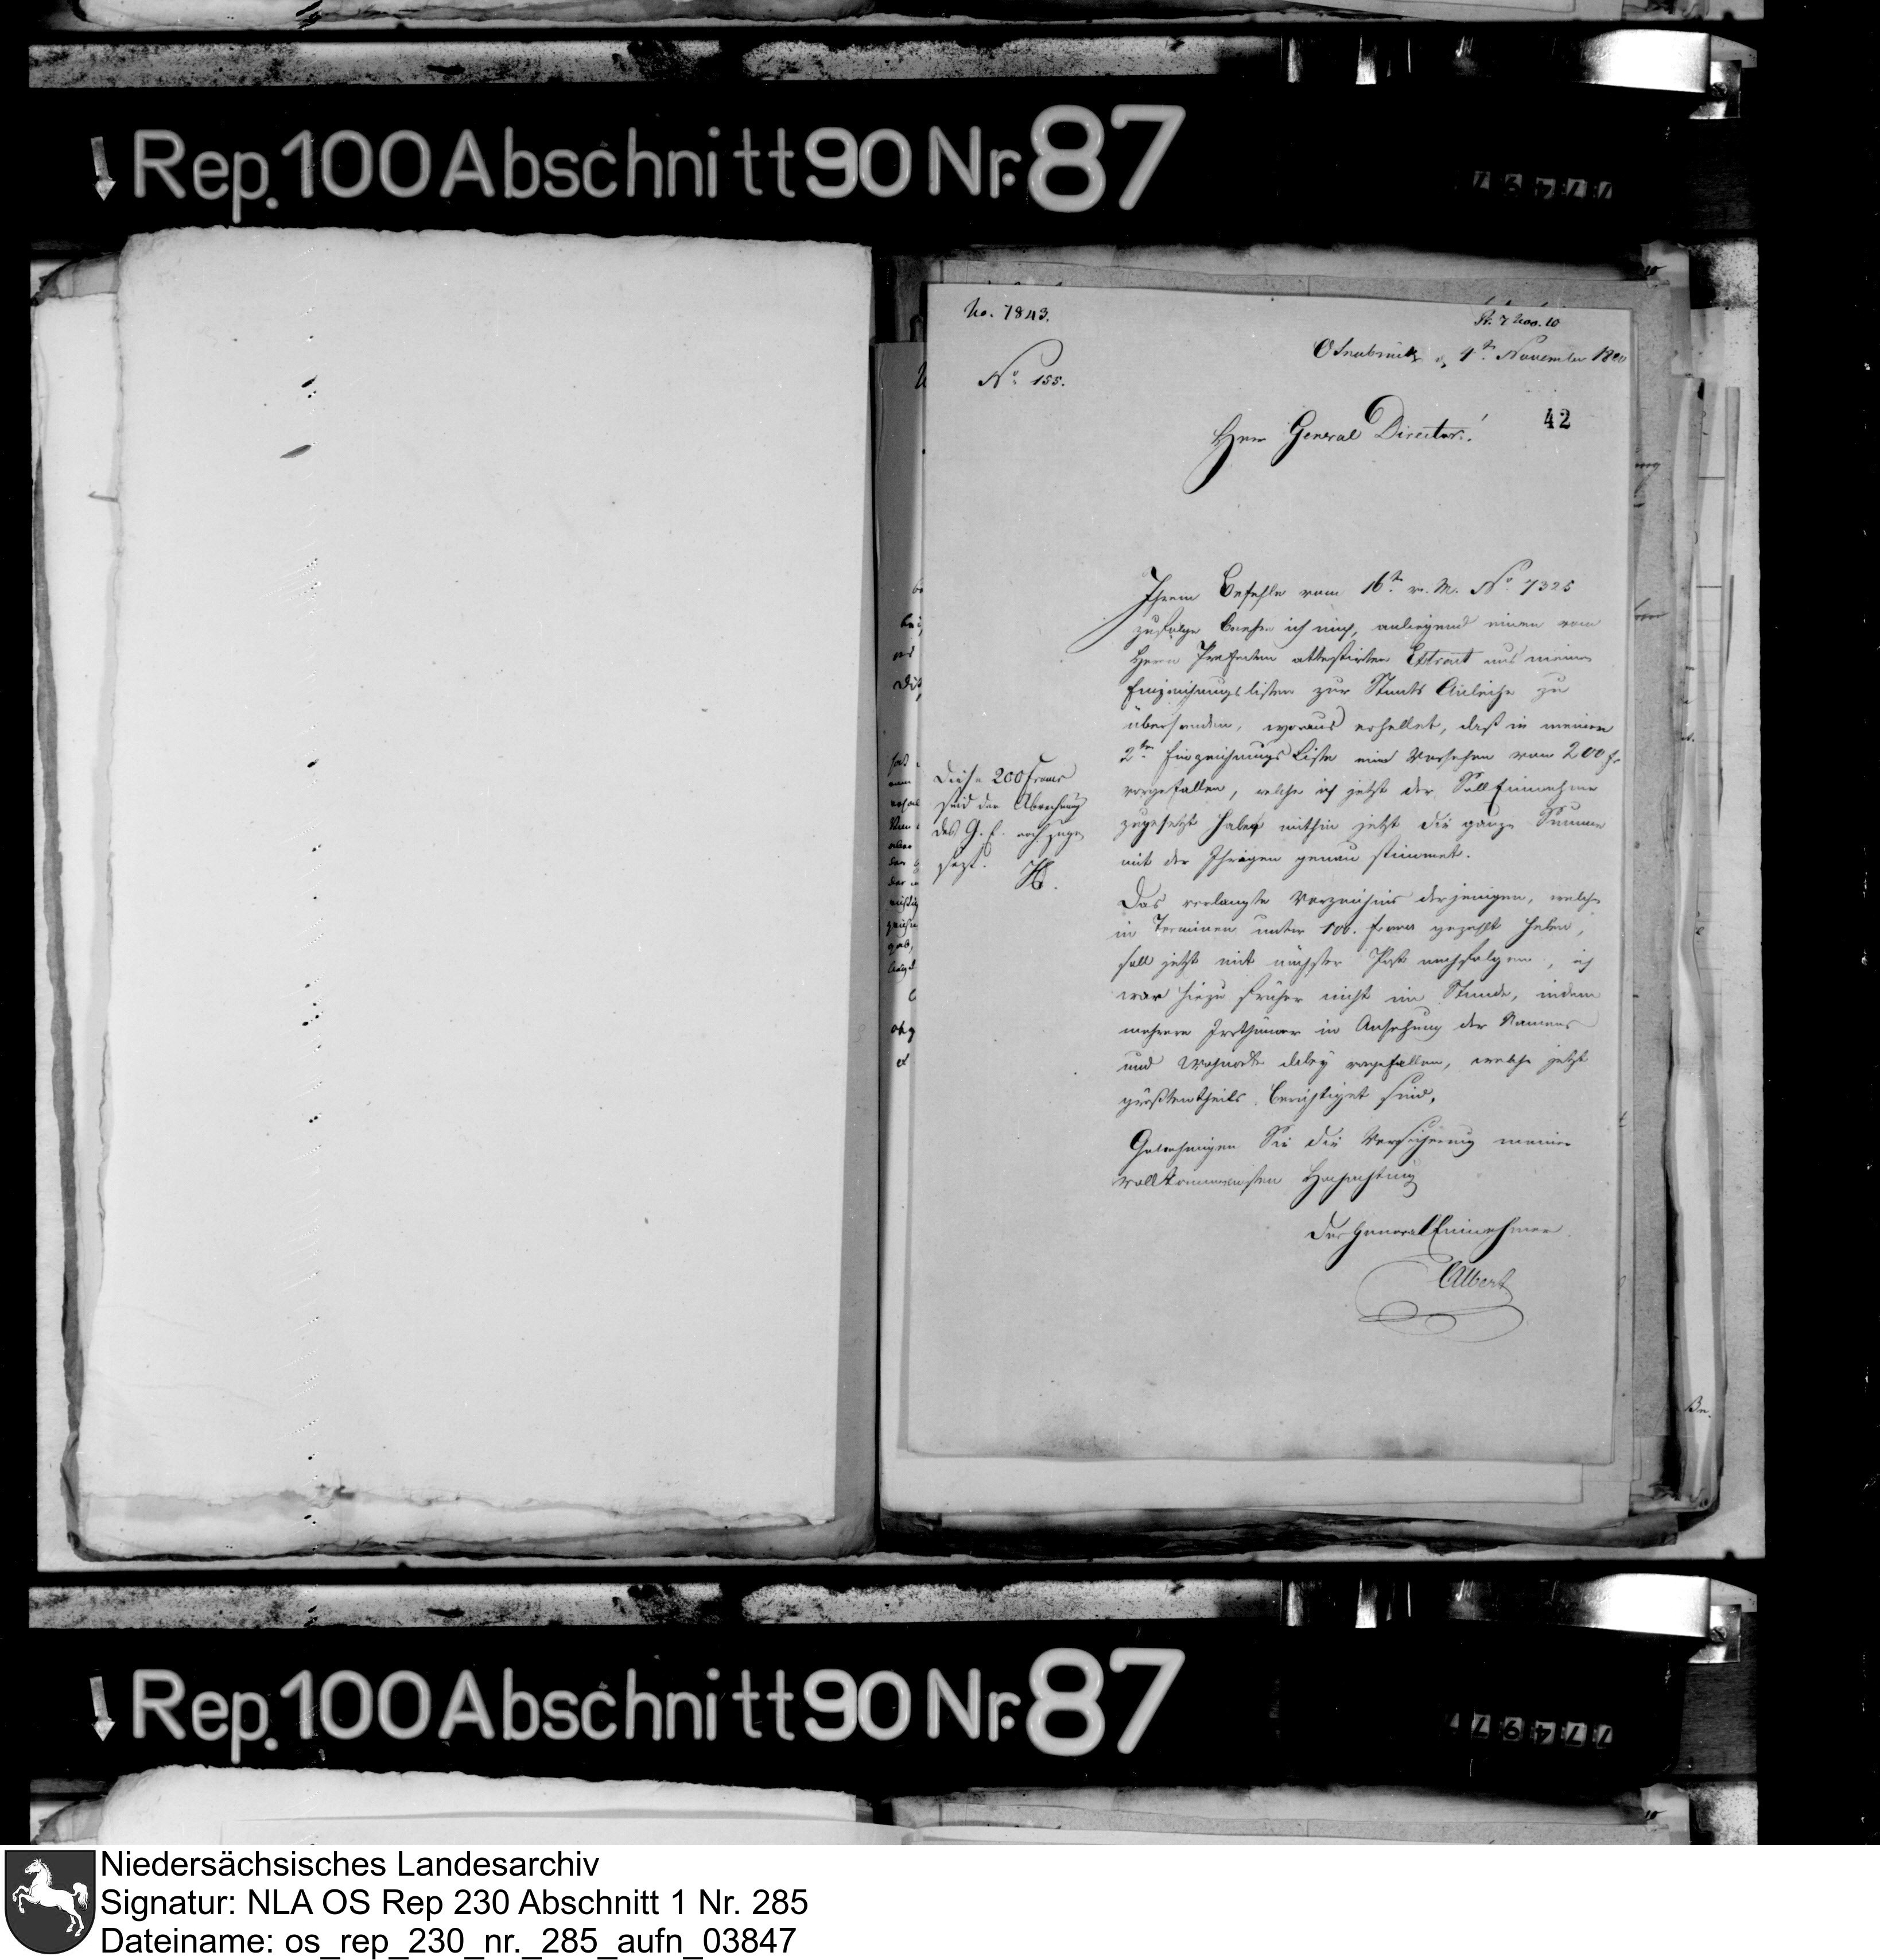 Rep. 100 Abschnitt 90 Nr. 87
77497
No. 7843.
Pr. 7 Nov. 10
Osnabrück, d. 4ten November 1810
No. 155.
42
Herr General Director!
Ihrem Befehle vom 16ten v. M. No. 7325
zufolge beehre ich mich, anliegend einen vom
Herrn Präfecten attestirten Extract aus meinen
Einzeichnungslisten zur Staats Anleihe zu
übersenden, woraus erhellet, daß in meiner
2ten Einzeichnungs Liste ein Versehen von 200 fr.
vorgefallen, welche ich jetzt der Soll Einnahme
zugesetzt habe mithin jetzt die ganze Summe
mit der Ihrigen genau stimmet.
Diese 200 Francs
sind der Abrechnung
des G. E. noch zuge-
setzt.
Das verlangte Verzeichnis derjenigen, welche
in Terminen unter 100. Franc gezahlt haben,
soll jetzt mit nächster Post nachfolgen, ich
war hiezu früher nicht im Stande, indem
mehrere Irrthümer in Ansehung der Namens
und Wohnorte dabey vorgefallen, welche jetzt
größtentheils berichtiget sind.
Genehmigen Sie die Versicherung meiner
vollkommensten Hochachtung
Der General Einnehmer
Albert
Rep. 100 Abschnitt 90 Nr. 87
77497
Niedersächsisches Landesarchiv
Signatur: NLA OS Rep 230 Abschnitt 1 Nr. 285
Dateiname: os_rep_230_nr._285_aufn_03847